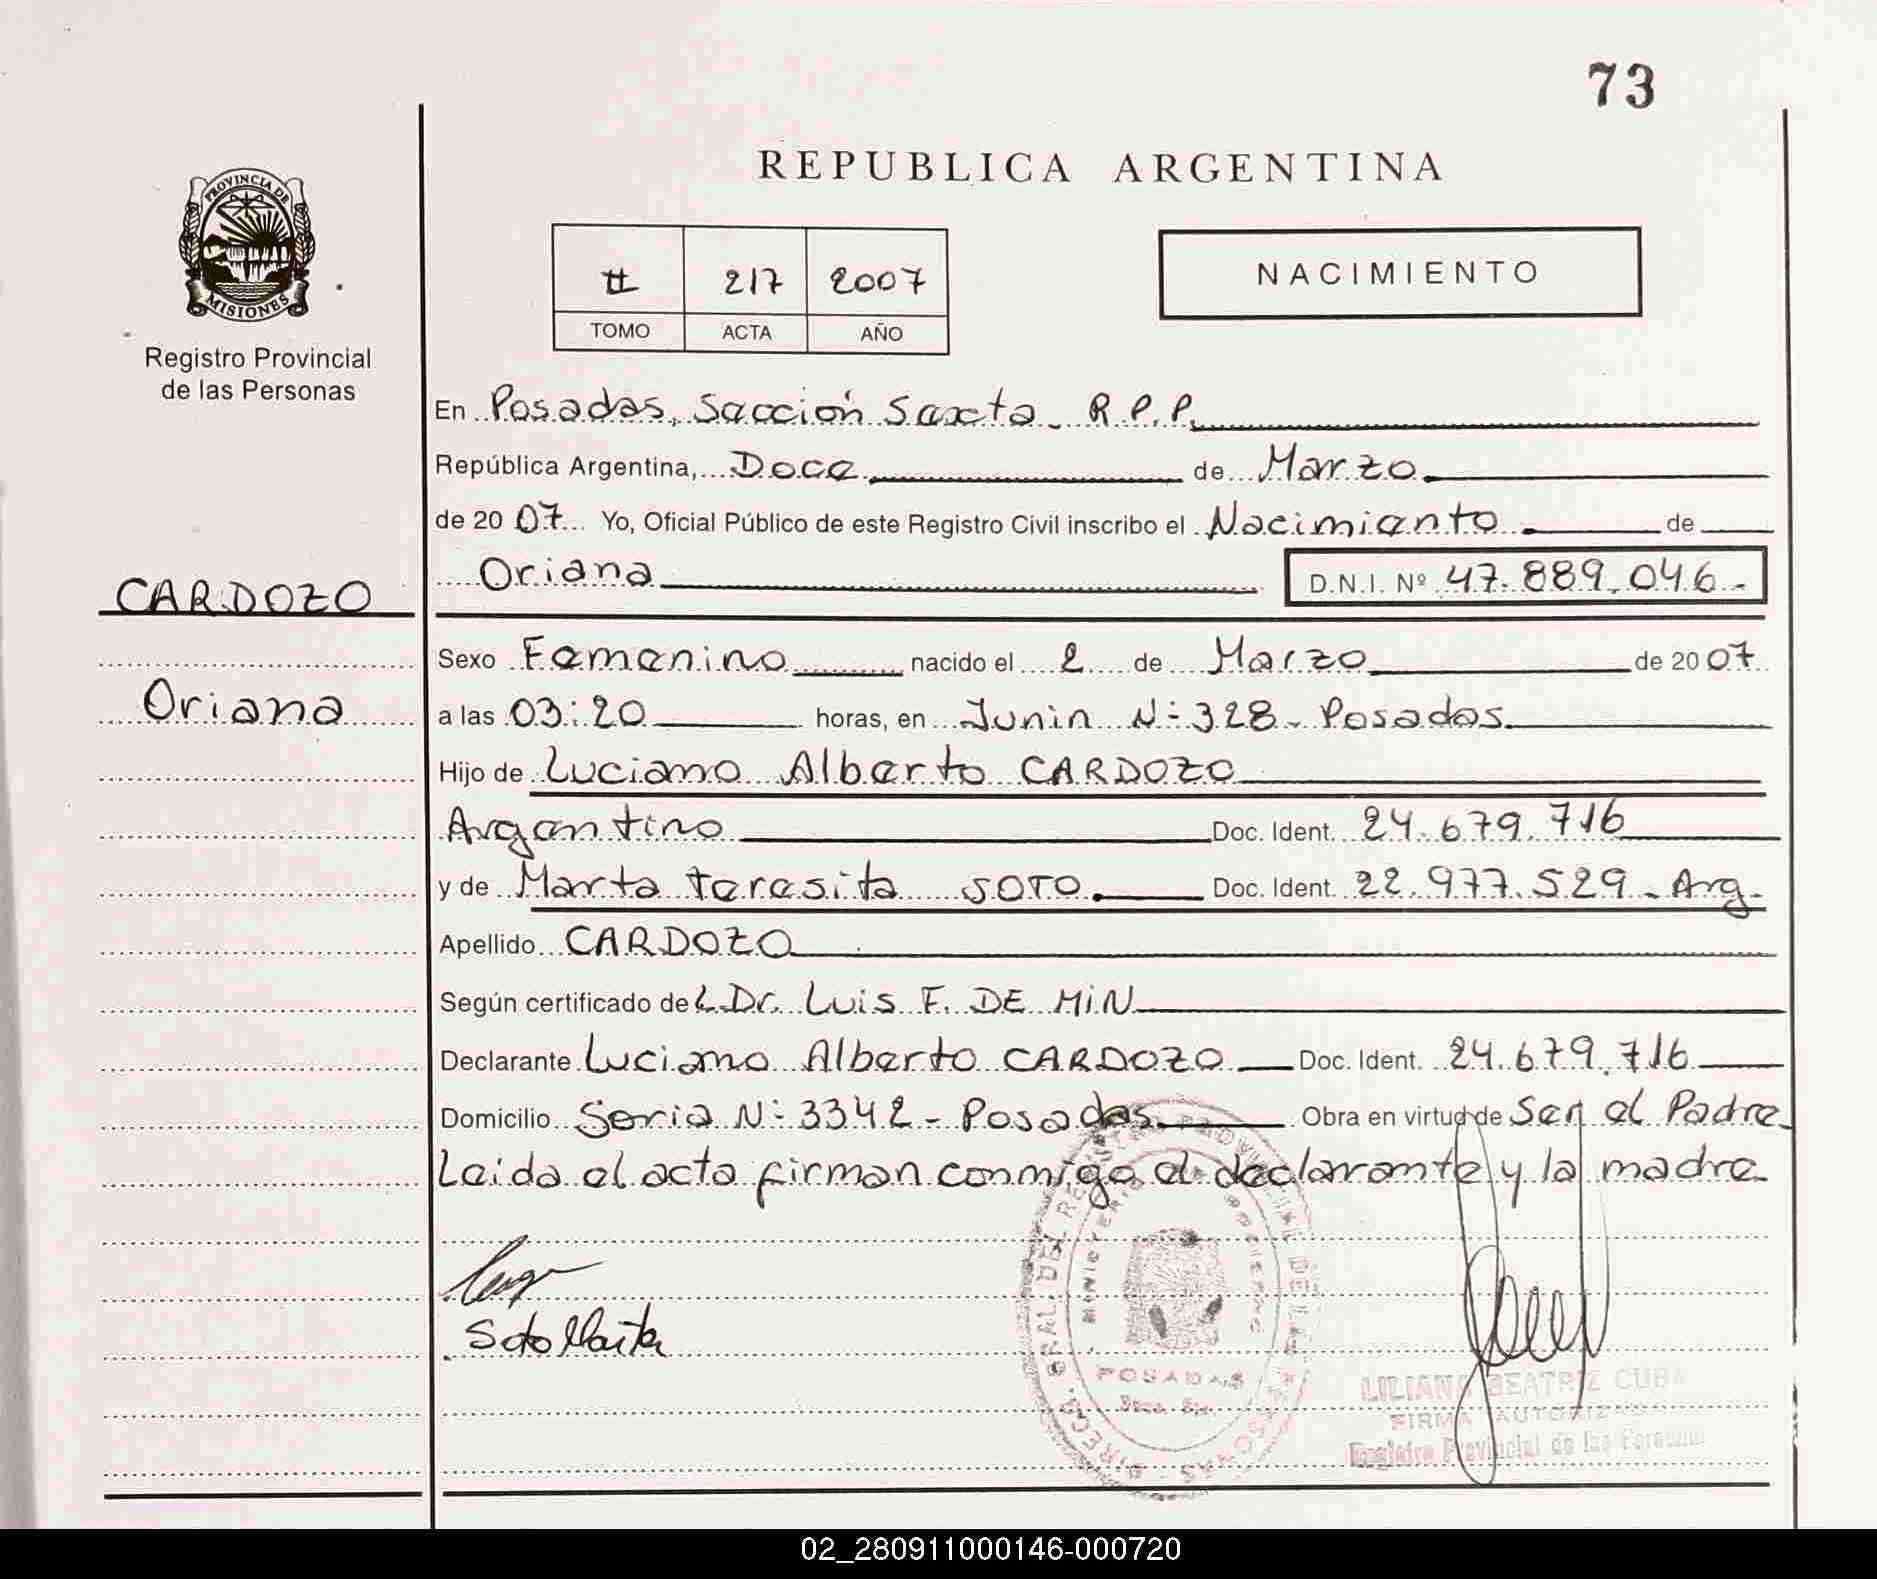 73
REPUBLICA ARGENTINA
PROVINCIA DE
MISIONES
Registro Provincial
de las Personas
II 217 2007
TOMO ACTA AÑO
NACIMIENTO
En Posadas, Sección Sexta - R.P.P.
República Argentina, Doce de Marzo
de 2007 Yo, Oficial Público de este Registro Civil inscribo el Nacimiento de
Oriana D.N.I. Nº 47.889.046.-
CARDOZO
Oriana
Sexo Femenino nacido el 2 de Marzo de 2007
a las 03:20 horas, en Junin Nº 328 - Posadas
Hijo de Luciano Alberto CARDOZO
Argentino Doc. Ident. 24.679.716
y de Marta teresita SOTO. Doc. Ident. 22.977.529 - Arg.
Apellido CARDOZO
Según certificado del Dr. Luis F. DE MiN
Declarante Luciano Alberto CARDOZO Doc. Ident. 24.679.716
Domicilio Soria Nº 3342 - Posadas Obra en virtud de Ser el Padre
Leida el acta firman conmigo el declarante y la madre
Soto Marta
DIRECC. GRAL. DEL REGISTRO PROVINCIAL DE LAS PERSONAS
MINISTERIO DE GOBIERNO
POSADAS
LILIANA BEATRIZ CUBA
FIRMA AUTORIZADA
Registro Provincial de las Personas
02_280911000146-000720